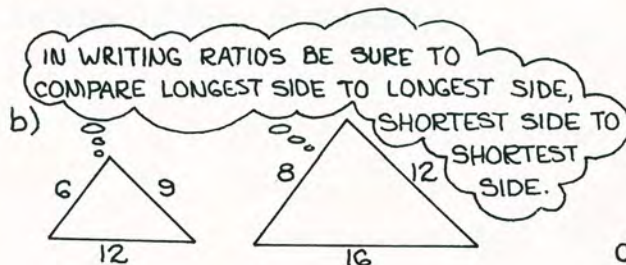 IN WRITING RATIOS BE SURE TO
COMPARE LONGEST SIDE TO LONGEST SIDE,
SHORTEST SIDE TO
SHORTEST
SIDE.
b)
6
9
12
8
12
16